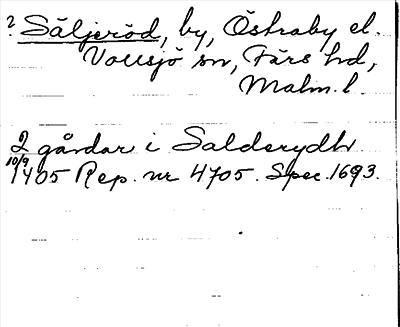 ? Säljeröd, by, Östraby el.
Vollsjö sn, Färs hd,
Malm. l.
2 gårdar i Salderydh
10/9 1405 Rep. nr 4705. Spec. 1693.